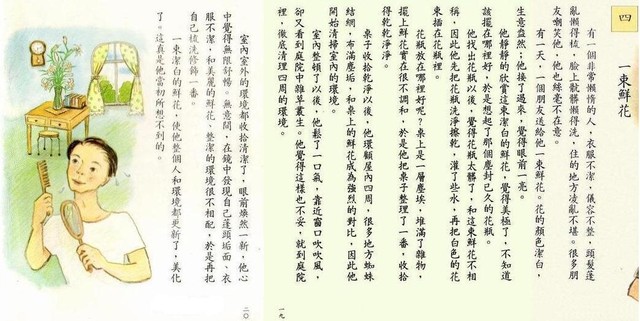 四
一束鮮花
有一個非常懶惰的人，衣服不潔，儀容不整，頭髮蓬
亂懶得梳，臉上骯髒懶得洗，住的地方凌亂不堪。很多朋
友嘲笑他，他也絲毫不在意。
有一天，一個朋友送給他一束鮮花。花的顏色潔白，
生意盎然；他接了過來，覺得眼前一亮。
他靜靜的欣賞這束潔白的鮮花，覺得美極了，不知道
該擺在哪裡好，於是想起了那個塵封已久的花瓶。
他找出花瓶以後，覺得花瓶太髒了，和這束鮮花不相
稱，因此他先把花瓶洗淨擦乾，灌了些水，再把白色的花
束插在花瓶裡。
花瓶放在哪裡好呢？桌上是一層塵埃，堆滿了雜物，
擺上鮮花實在很不調和，於是他把桌子整理了一番，收拾
得乾乾淨淨。
桌子收拾乾淨以後，他環顧屋內四周，很多地方蜘蛛
結網，布滿塵垢，和桌上的鮮花成為強烈的對比，因此他
開始清掃室內的環境。
室內整頓了以後，他鬆了一口氣，靠近窗口吹吹風，
卻又看到庭院中雜草叢生。他覺得這樣也不妥，就到庭院
裡，徹底清理四周的環境。
一九
室內室外的環境都收拾清潔了，眼前煥然一新，他心
中覺得無限舒暢。無意間，在鏡中發現自己蓬頭垢面、衣
服不潔，和美麗的鮮花、整潔的環境很不相配，於是再把
自己梳洗修飾一番。
一束潔白的鮮花，使他整個人和環境都更新了，美化
了。這真是他當初所想不到的。
二〇